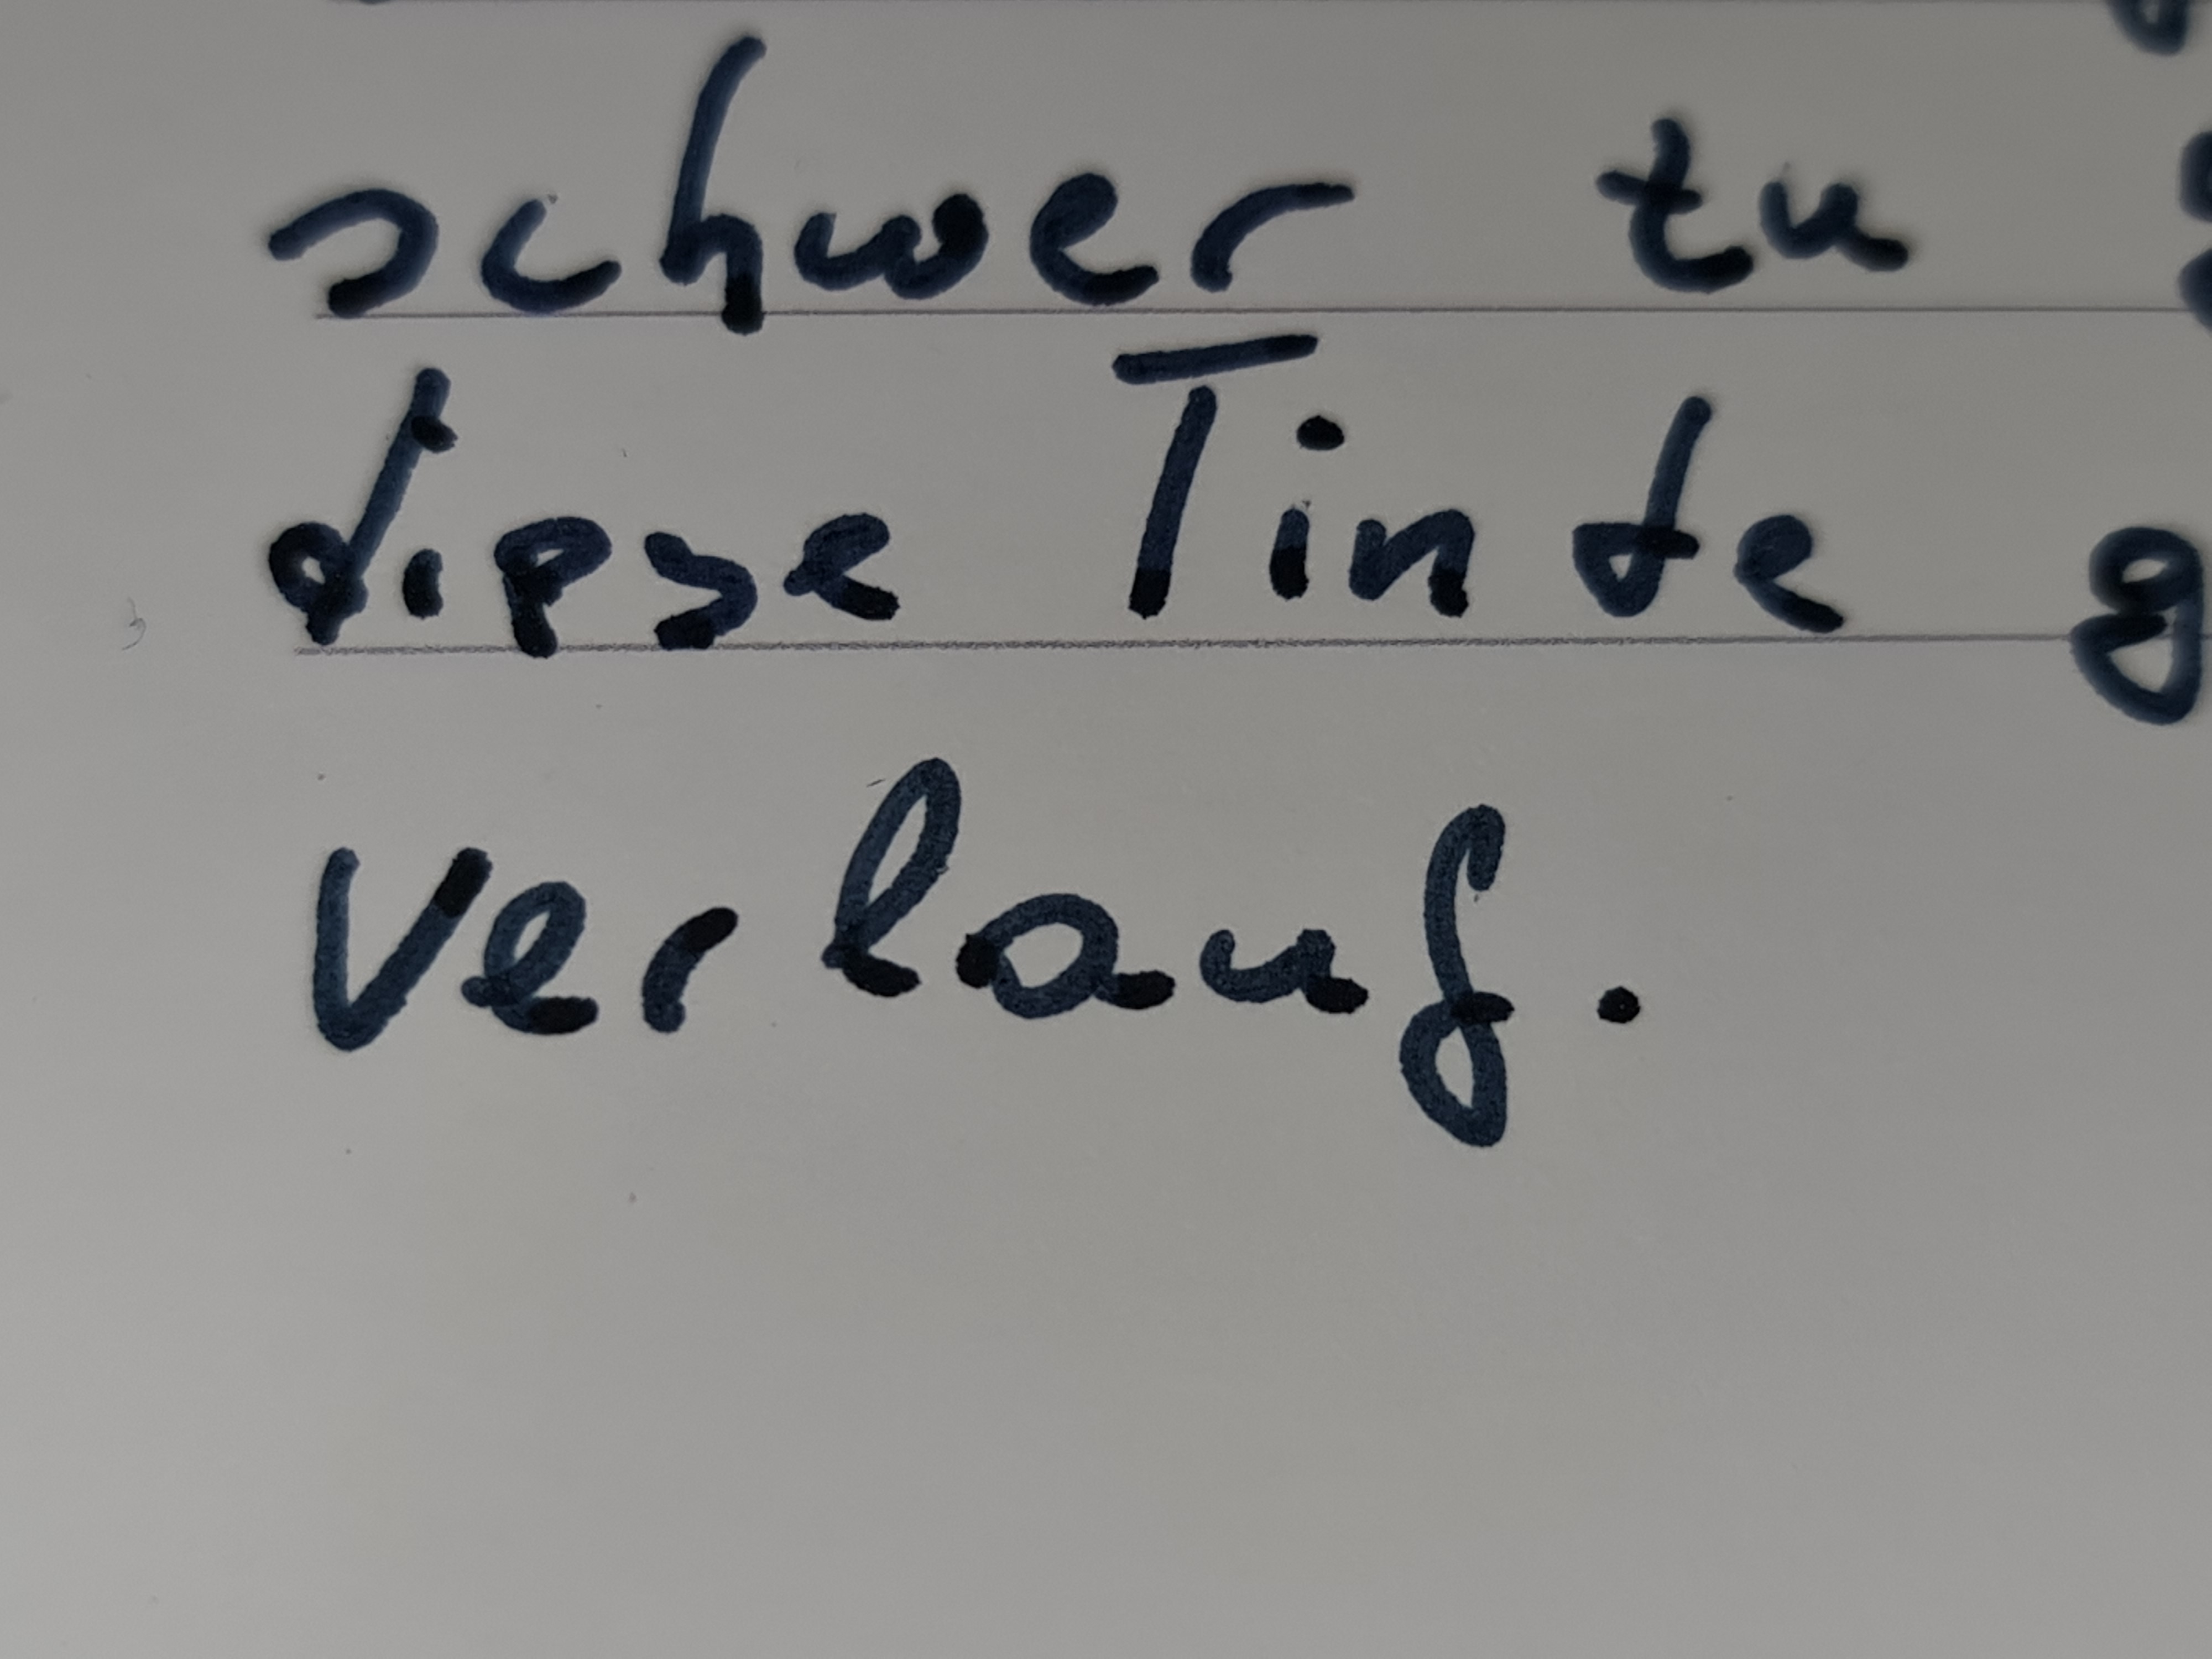 schwer zu
diese Tinte
Verlauf.